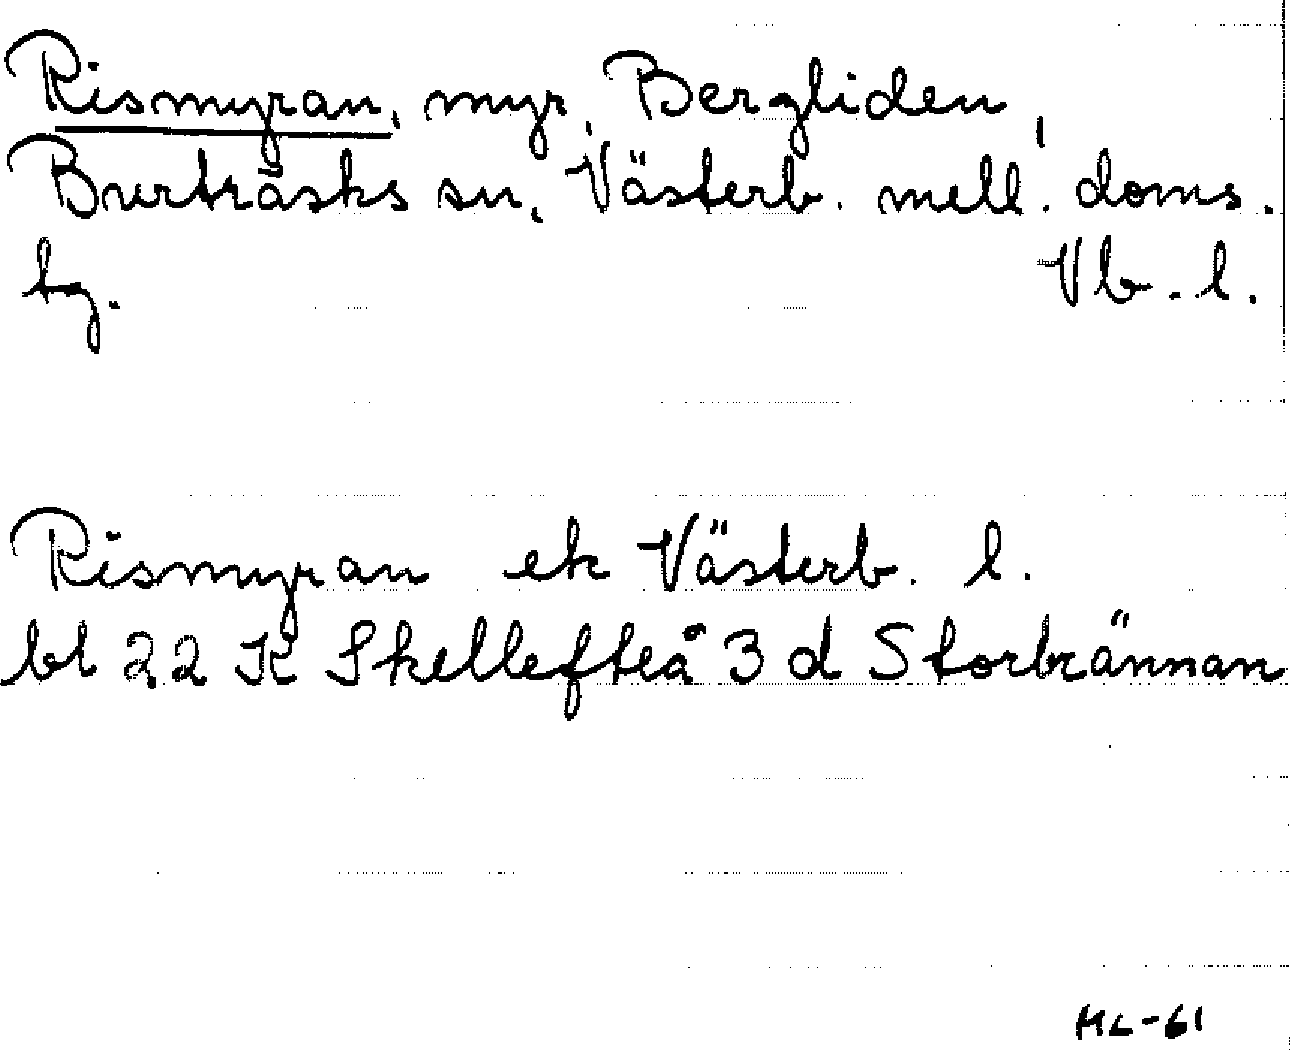 Rismyran, myr, Bergliden,
Burträsks sn, Västerb. mell. doms.
tg. Vb. l.
Rismyran ek Västerb. l.
bl 22 K Skellefteå 3 d Storbrännan
HL-61